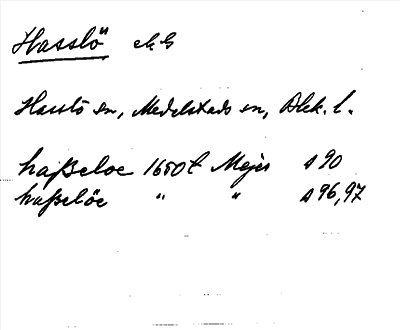 Hasslö
Hasslö sn, Medelstads sn, Blek. l.
haßeloe 1650 t Mejer s 90
haßelöe " " s 96, 97